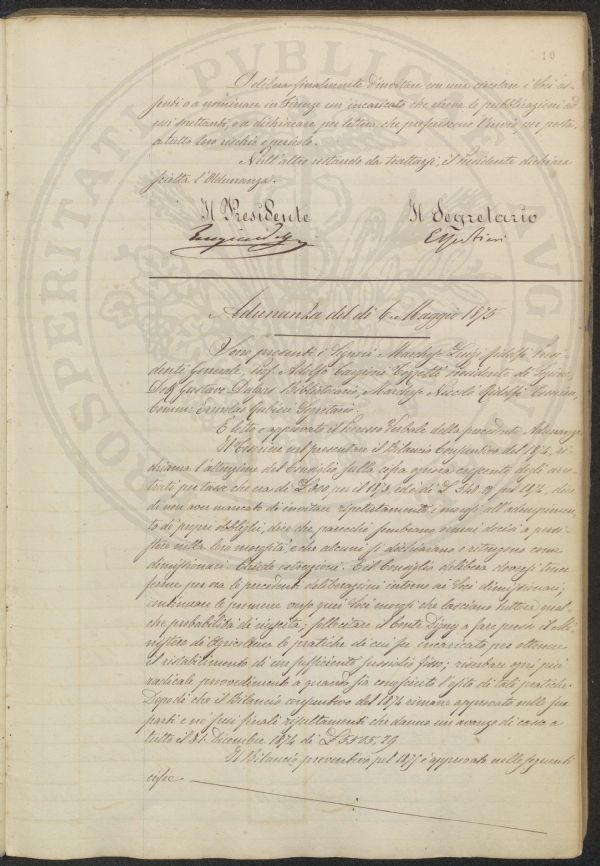 10
Delibera finalmente d'invitare con una circolare i Soci as-
senti o a nominare in Firenze un incaricato che riceva le pubblicazioni ad
essi spettanti, o a dichiarare per lettera che preferiscono l'invio per posta,
a tutto loro rischio e pericolo.
Null'altro restando da trattarsi, il Presidente dichiara
sciolta l'Adunanza.
Il Presidente Il Segretario
Adunanza del dì 6 Maggio 1875
Sono presenti i Signori Marchese Luigi Ridolfi Presi-
dente Generale, Prof. Adolfo Targioni Tozzetti Presidente di Sezione,
Dott. Gustavo Dalgas Bibliotecario, Marchese Niccolò Ridolfi
È letto e approvato il Processo Verbale della precedente Adunanza
nel presentare il Bilancio Consuntivo del 1874, ri-
chiama l'attenzione del Consiglio sulla cifra ognora crescente degli arre-
trati per tasse che era di per il 1873 ed è di per 1874, dice
di non aver mancato di invitare ripetutamente i morosi all'adempimen-
to di propri obblighi, dice che parecchi sembrano ormai decisi a persi-
stere nella loro morosità e che alcuni si dichiarano e ritengono come
dimissionari. Chiede istruzioni. E il Consiglio delibera doversi tener
ferme per ora le precedenti deliberazioni intorno ai Soci dimissionari;
continuare le premure verso quei Soci morosi che lasciano tuttora qual-
che probabilità di risposta; sollecitare il Conte Digny a fare presso il Mi-
nistero di Agricoltura le pratiche di cui fu incaricato per ottenere
il ristabilimento di un sufficiente sussidio fisso; riserbare ogni più
radicale provvedimento a quando sia conosciuto l'esito di tali pratiche.
Dopo di che il Bilancio consuntivo del 1874 rimane approvato nelle sue
parti e nei suoi finali resultamenti che danno un avanzo di cassa a
tutto il 31 Dicembre 1874 di
Il Bilancio preventivo pel 1875 è approvato nelle seguenti
cifre
PROSPERITATI PUBLICAE AUGENDAE